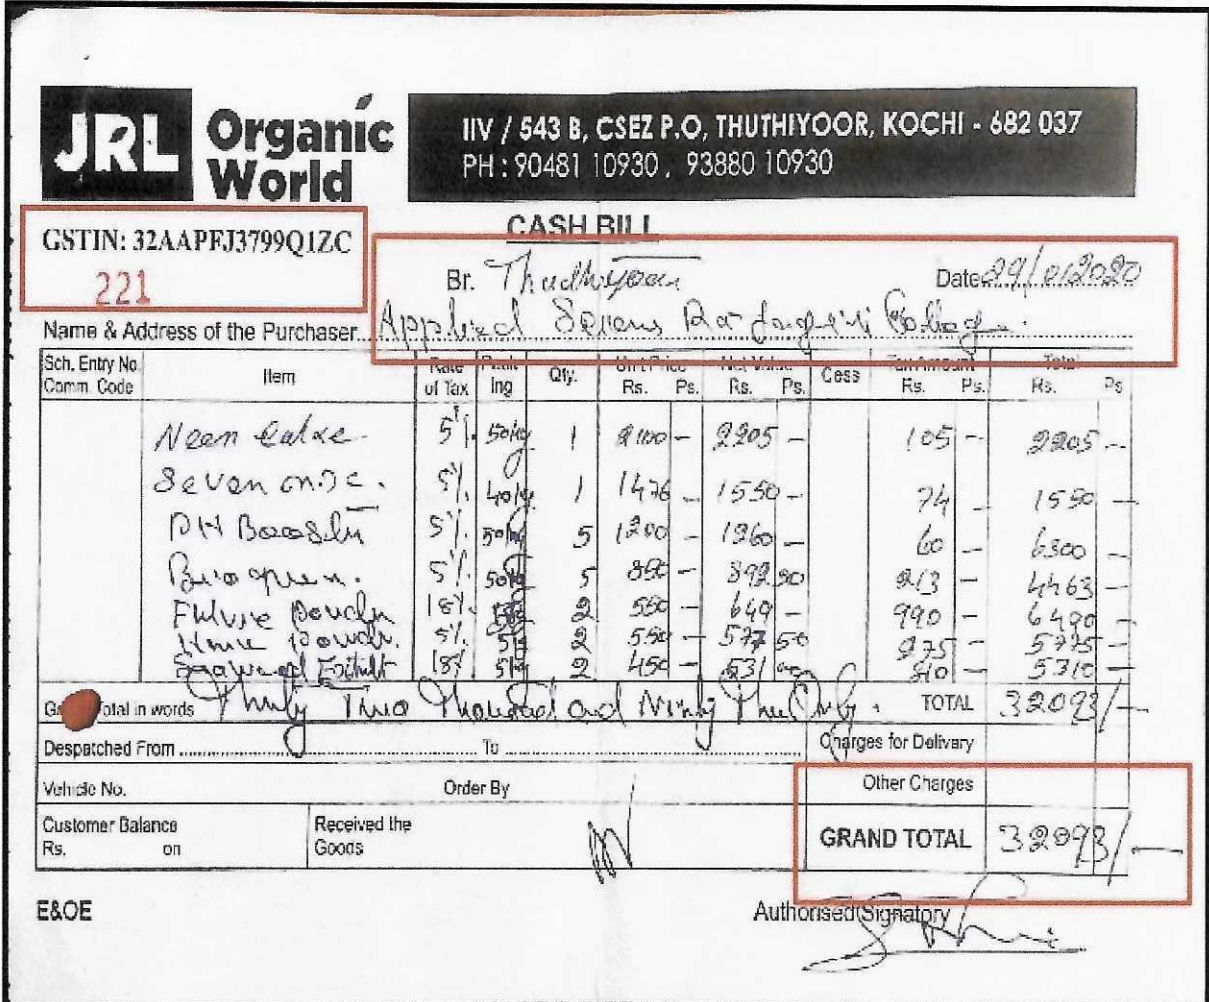 JRL Organic World
IIV / 543 B, CSEZ P.O, THUTHIYOOR, KOCHI - 682 037
PH : 90481 10930, 93880 10930
CASH BILL
GSTIN: 32AAPFJ3799Q1ZC
221
Br. Date 29/
Name & Address of the Purchaser Applied
Sch. Entry No. Comm. Code Item Rate of Tax ing Qty. Unit Price Rs. Ps. Net Value Rs. Ps. Cess Tax Amount Rs. Ps. Total Rs. Ps
Neem 5% 50kg 1 2100 - 2205 - 105 - 2205 -
Seven 5% 40kg 1 1476 - 1550 - 74 - 1550 -
PH 5% 50kg 5 1200 - 1260 - 60 - 6300 -
5% 50kg 5 850 - 892 50 213 - 4463 -
18% 2 550 - 649 - 990 - 6490 -
5% 2 550 - 577 50 275 - 5775 -
18% 2 450 - 531 5310 -
Total in words Thirty Two Thousand and Ninty Three Only. TOTAL 32093/-
Despatched From To Charges for Delivery
Vehicle No. Order By Other Charges
Customer Balance Rs. on Received the Goods GRAND TOTAL 32093/-
E&OE Authorised Signatory